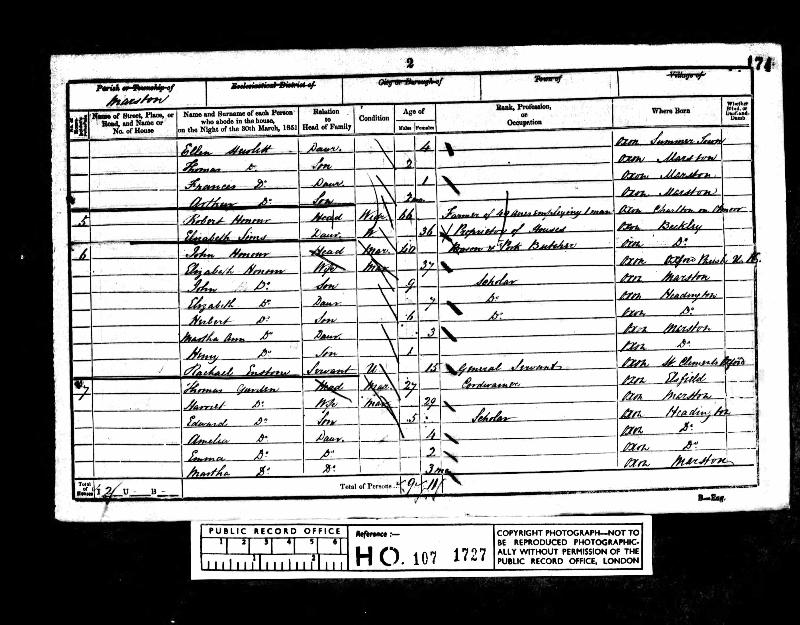 2
174
Parish or Township of
Marston
Ecclesiastical District of
City or Borough of
Town of
Village of
Name of Street, Place, or Road, and Name or No. of House
Name and Surname of each Person who abode in the house, on the Night of the 30th March, 1851
Relation to Head of Family
Condition
Age of
Males Females
Rank, Profession, or Occupation
Where Born
Whether Blind, or Deaf-and-Dumb
Ellen Hewlett Daur. 4 Oxon Summer Town
Thomas Do. Son 2 Oxon Marston
Frances Do. Daur. 1 Oxon Marston
Arthur Do. Son 2 mo Oxon Marston
5 Robert Honour Head Widr 66 Farmer of 49 acres employing 1 man Oxon Charlton on Otmoor
Elizabeth Sims Daur. W 36 Proprietor of Houses Oxon Beckley
6 John Honour Head Mar. 40 & Pork Butcher Oxon Do.
Elizabeth Honour Wife Mar. 37 Oxon Oxford Parish
John Do. Son 9 Scholar Oxon Marston
Elizabeth Do. Daur. 7 Do. Oxon Headington
Herbert Do. Son 6 Do. Oxon Do.
Martha Ann Do. Daur. 3 Oxon Marston
Henry Do. Son 1 Oxon Do.
Rachael Servant U 15 General Servant Oxon St Clements Oxford
7 Thomas Head Mar. 27 Cordwainer Oxon Elsfield
Harriet Do. Wife Mar. 29 Oxon Marston
Edward Do. Son 5 Scholar Oxon Headington
Amelia Do. Daur. 4 Oxon Do.
Emma Do. Do. 2 Oxon Do.
Martha Do. Do. 3 mo Oxon Marston
Total of Houses I 2 U B
Total of Persons 9 11
B—Eng.
PUBLIC RECORD OFFICE
1 2 3 4 5 6
1 2
Reference :—
HO. 107 1727
COPYRIGHT PHOTOGRAPH—NOT TO
BE REPRODUCED PHOTOGRAPHIC-
ALLY WITHOUT PERMISSION OF THE
PUBLIC RECORD OFFICE, LONDON